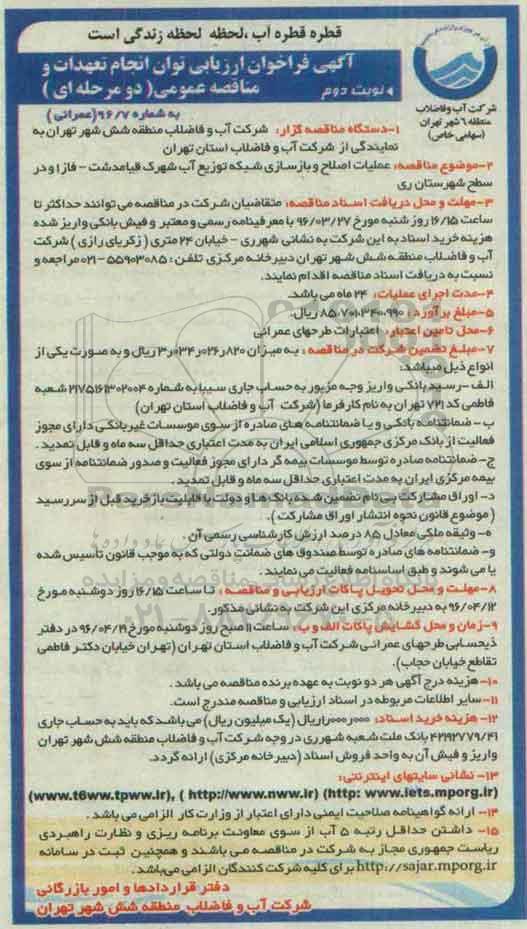 قطره قطره آب ،لحظه لحظه زندگی است
آگهی فراخوان ارزیابی توان انجام تعهدات و
مناقصه عمومی( دو مرحله ای )
نوبت دوم
به شماره ۹۶/۷(عمرانی)
شرکت آب و فاضلاب
منطقه ۶ شهر تهران
(سهامی خاص)
۱-دستگاه مناقصه گزار: شرکت آب و فاضلاب منطقه شش شهر تهران به
نمایندگی از شرکت آب و فاضلاب استان تهران
۲-موضوع مناقصه: عملیات اصلاح و بازسازی شبکه توزیع آب شهرک قیامدشت - فاز ۱ و در
سطح شهرستان ری
۳-مهلت و محل دریافت اسناد مناقصه: متقاضیان شرکت در مناقصه می توانند حداکثر تا
ساعت ۱۶/۱۵ روز شنبه مورخ ۹۶/۰۳/۲۷ با معرفینامه رسمی و معتبر و فیش بانکی واریز شده
هزینه خرید اسناد به این شرکت به نشانی شهرری - خیابان ۲۴ متری ( زکریای رازی ) شرکت
آب و فاضلاب منطقه شش شهر تهران دبیرخانه مرکزی تلفن: ۵۵۹۰۳۰۸۵-۰۲۱ مراجعه و
نسبت به دریافت اسناد مناقصه اقدام نمایند.
۴-مدت اجرای عملیات: ۲۴ ماه می باشد.
۵-مبلغ برآورد: ۸۵،۷۰۱،۳۴۰،۹۹۰ ریال.
۶-محل تامین اعتبار: اعتبارات طرحهای عمرانی
۷-مبلغ تضمین شرکت در مناقصه: به میزان ۳٫۰۳۴٫۰۲۶٫۸۲۰ ریال و به صورت یکی از
انواع ذیل میباشد:
الف -رسید بانکی واریز وجه مزبور به حساب جاری سیبا به شماره ۲۱۷۵۱۶۱۳۰۲۰۰۴ شعبه
فاطمی کد ۷۲۱ تهران به نام کارفرما (شرکت آب و فاضلاب استان تهران)
ب - ضمانتنامه بانکی و یا ضمانتنامه های صادره از سوی موسسات غیربانکی دارای مجوز
فعالیت از بانک مرکزی جمهوری اسلامی ایران به مدت اعتباری حداقل سه ماه و قابل تمدید .
ج- ضمانتنامه صادره توسط موسسات بیمه گر دارای مجوز فعالیت و صدور ضمانتنامه از سوی
بیمه مرکزی ایران به مدت اعتباری حداقل سه ماه و قابل تمدید .
د- اوراق مشارکت بی نام تضمین شده بانک ها و دولت با قابلیت بازخرید قبل از سررسید
( موضوع قانون نحوه انتشار اوراق مشارکت ) .
ه- وثیقه ملکی معادل ۸۵ درصد ارزش کارشناسی رسمی آن .
و- ضمانتنامه های صادره توسط صندوق های ضمانت دولتی که به موجب قانون تأسیس شده
یا می شوند و طبق اساسنامه فعالیت می نمایند.
۸-مهلت و محل تحویل پاکات ارزیابی و مناقصه : تا ساعت ۱۶/۱۵ روز دوشنبه مورخ
۹۶/۰۴/۱۲ به دبیرخانه مرکزی این شرکت به نشانی مذکور.
۹-زمان و محل گشایش پاکات الف و ب: ساعت ۱۱ صبح روز دوشنبه مورخ ۹۶/۰۴/۱۹ در دفتر
ذیحسابی طرحهای عمرانی شرکت آب و فاضلاب استان تهران (تهران خیابان دکتر فاطمی
تقاطع خیابان حجاب).
۱۰-هزینه درج آگهی هر دو نوبت به عهده برنده مناقصه می باشد .
۱۱-سایر اطلاعات مربوطه در اسناد ارزیابی و مناقصه مندرج است.
۱۲- هزینه خرید اسناد: ۱٫۰۰۰٫۰۰۰ریال (یک میلیون ریال) می باشد که باید به حساب جاری
۴۲۱۹۲۷۷۹/۴۱ بانک ملت شعبه شهرری در وجه شرکت آب و فاضلاب منطقه شش شهر تهران
واریز و فیش آن به واحد فروش اسناد (دبیرخانه مرکزی) ارائه گردد.
۱۳- نشانی سایتهای اینترنتی:
(www.t6ww.tpww.ir), ( http://www.nww.ir) (http: www.iets.mporg.ir)
۱۴- ارائه گواهینامه صلاحیت ایمنی دارای اعتبار از وزارت کار الزامی می باشد .
۱۵- داشتن حداقل رتبه ۵ آب از سوی معاونت برنامه ریزی و نظارت راهبردی
ریاست جمهوری مجاز به شرکت در مناقصه می باشند و همچنین ثبت در سامانه
http://sajar.mporg.ir برای کلیه شرکت کنندگان الزامی می باشد.
دفتر قراردادها و امور بازرگانی
شرکت آب و فاضلاب منطقه شش شهر تهران